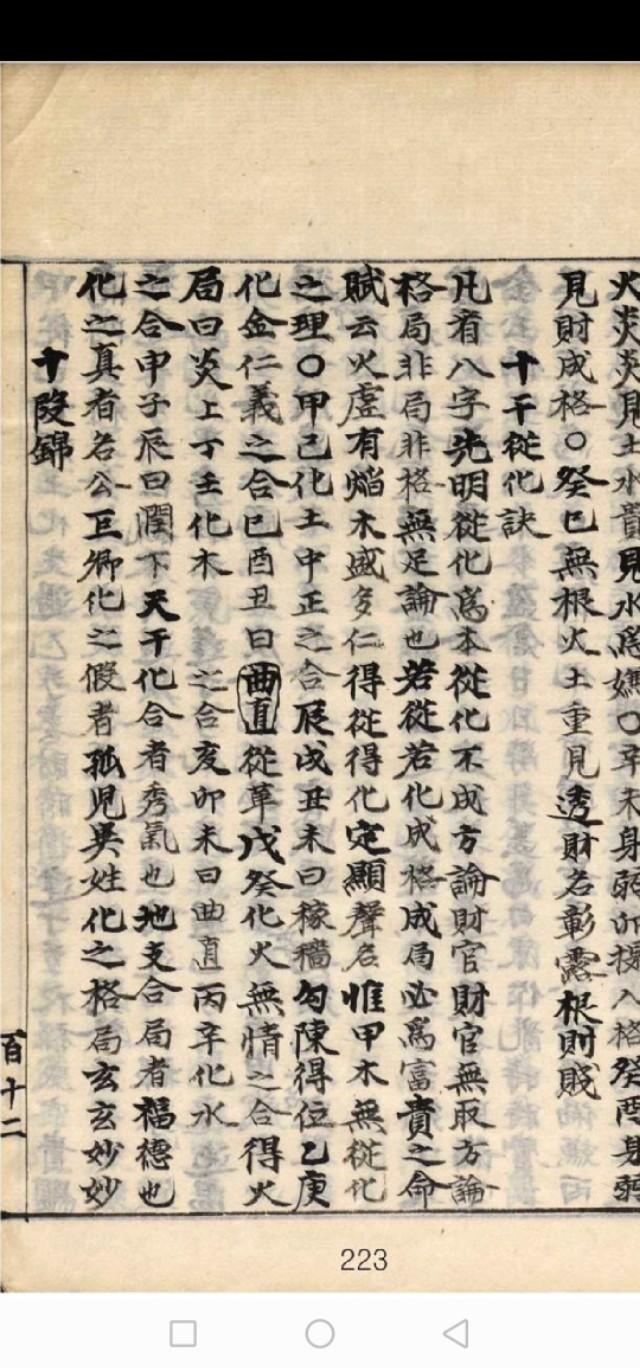 火炎炎見土水音見水爲媯〇辛未身弱卯提入格癸酉身弱
見財成格〇癸巳無根火土重見透財名彰露根則賤
十干從化訣
凡看八字先明從化爲本從化不成方論財官財官無取方論
格局非局非格無足論也若從若化成格成局必爲富貴之命
賦云火虛有焰木盛多仁得從得化定顯聲名惟甲木無從化
之理〇甲己化土中正之合辰戌丑未曰稼穡勾陳得位乙庚
化金仁義之合巳酉丑曰曲直從革戊癸化火無情之合得火
局曰炎上丁壬化木之合亥卯未曰曲直丙辛化水
之合申子辰曰潤下天干化合者秀氣也地支合局者福德也
化之真者名公巨卿化之假者孤児異姓化之格局玄玄妙妙
十段錦
百十二
223